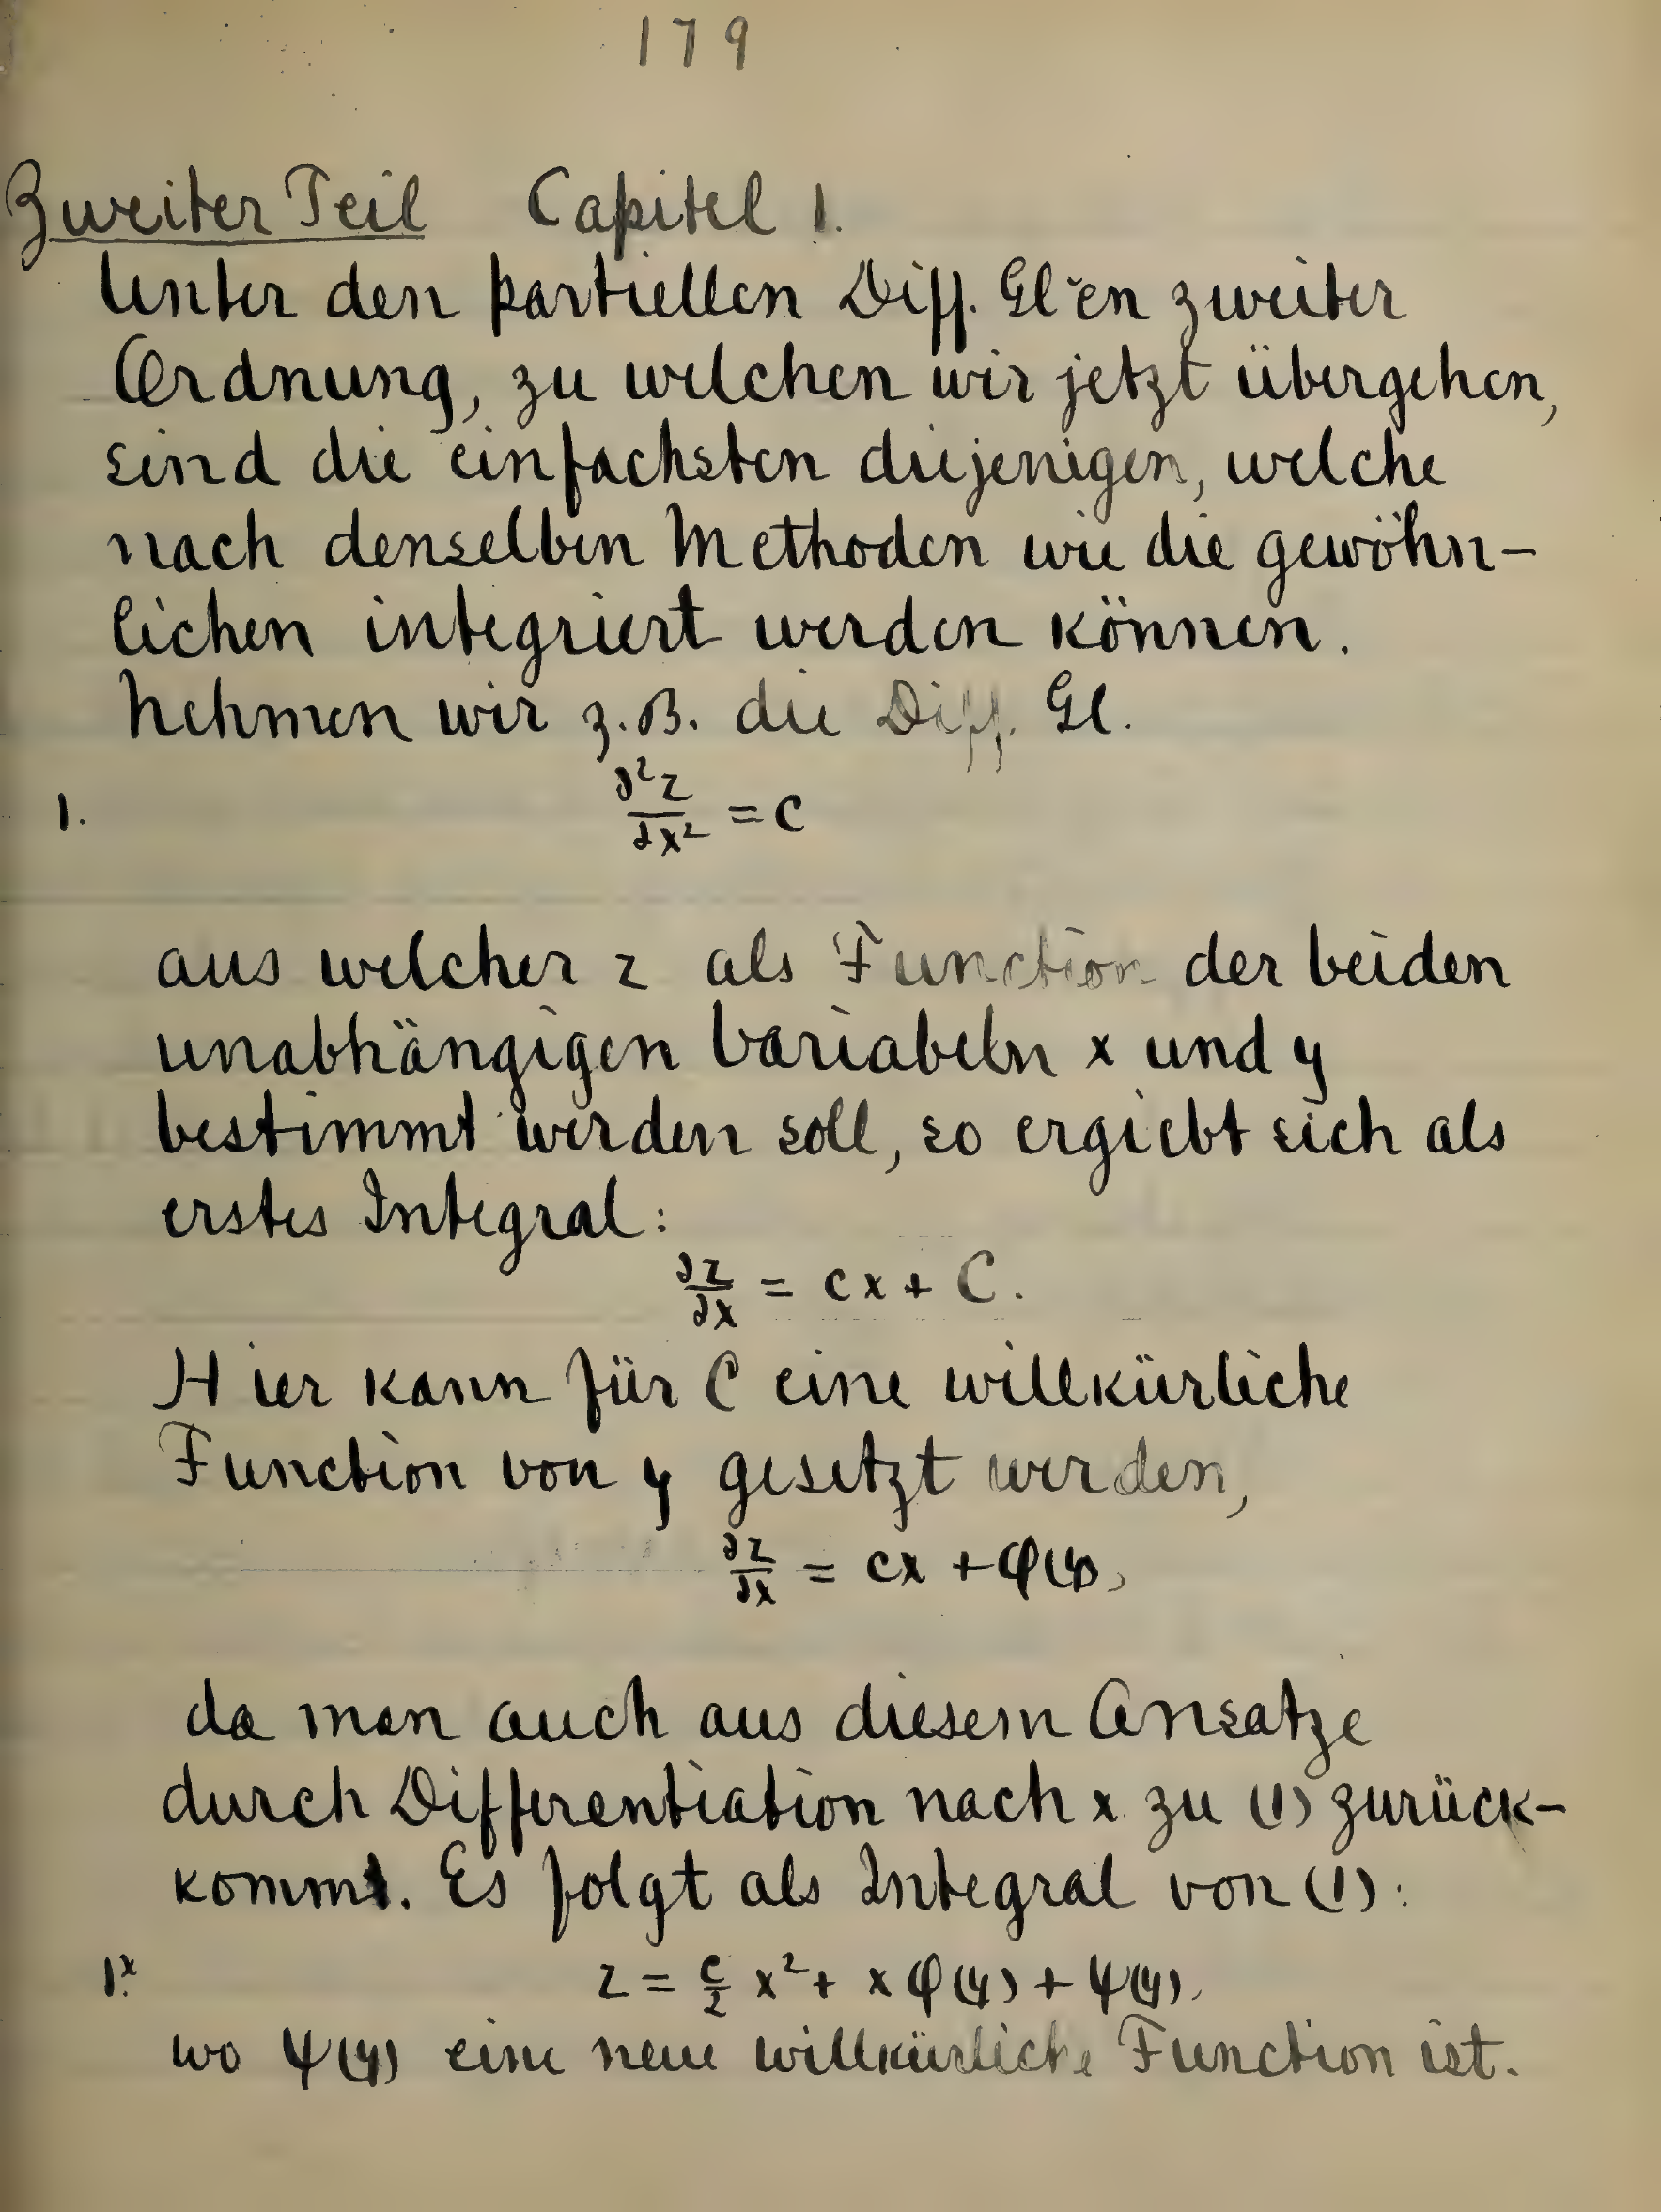 179
Zweiter Teil Capitel 1.
Unter den partiellen Diff. Gl~en zweiter
Ordnung, zu welchen wir jetzt übergehen,
sind die einfachsten diejenigen, welche
nach denselben Methoden wie die gewöhn-
lichen integriert werden können.
Nehmen wir z.B. die Diff. Gl.
1. ∂²z/∂x² = c
aus welcher z als Function der beiden
unabhängigen Variabeln x und y
bestimmt werden soll, so ergiebt sich als
erstes Integral:
∂z/∂x = cx + C.
Hier kann für C eine willkürliche
Function von y gesetzt werden,
∂z/∂x = cx + φ(y),
da man auch aus diesem Ansatze
durch Differentiation nach x zu (1) zurück-
kommt. Es folgt als Integral von (1):
1.ˣ z = c/2 x² + x φ(y) + ψ(y).
wo ψ(y) eine neue willkürliche Function ist.